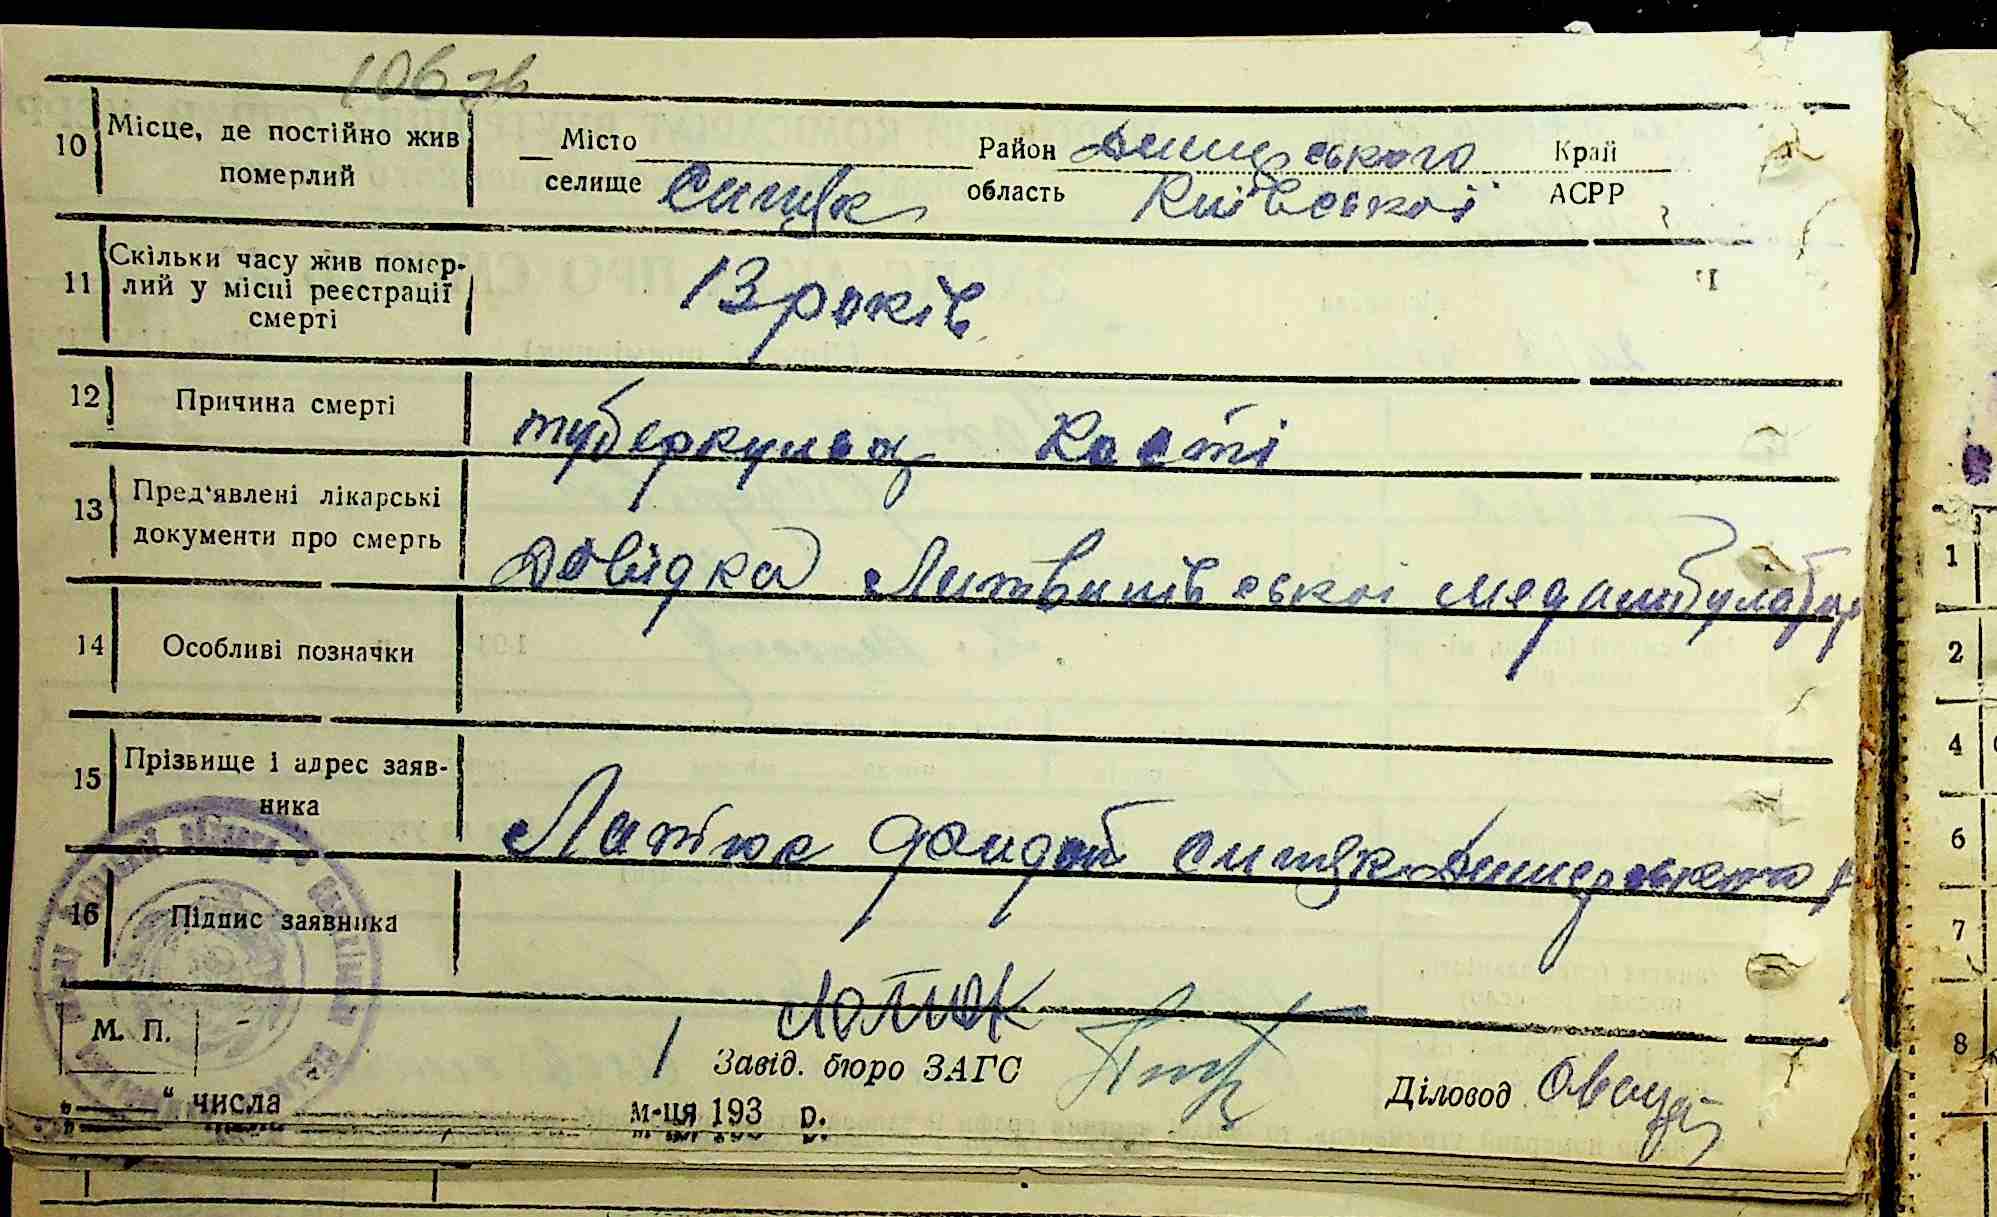 106 зв
10 Місце, де постійно жив
померлий
Місто Район Димерського Край
селище Ситняк область Київської АСРР
11 Скільки часу жив помер-
лий у місці реєстрації
смерті
13 років
12 Причина смерті
туберкульоз Кості
13 Пред'явлені лікарські
документи про смерть
Довідка Литвинівської медамбулатор
14 Особливі позначки
15 Прізвище і адрес заяв-
ника
Латюк Ситняк Димерського р
16 Підпис заявника
Латюк
М. П.
Завід. бюро ЗАГС
Діловод
„ “ числа м-ця 193 р.
1
2
4
6
7
8